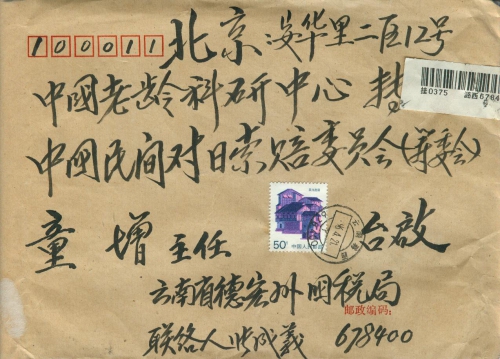 100011 北京安华里二区12号
中國老龄科研中心 挂
挂0375 潞西6784
号
中國民间对日索赔委员会(筹委会)
童增主任 台啟
50分 中国人民邮政
云南省德宏州国税局
邮政编码:
联络人 成義 678400